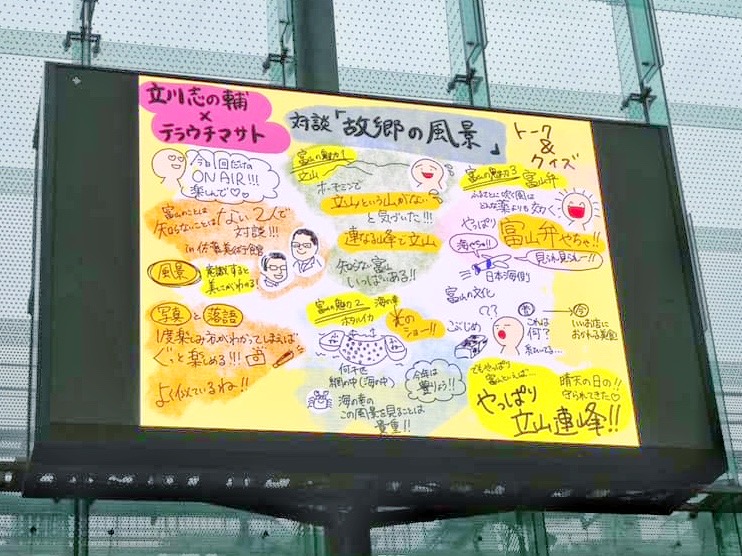 立川志の輔
×
テラウチマサト
対談「故郷の風景」
トーク
&
クイズ
今日1回だけの
ON AIR!!!
楽しんで♡♡
富山のことは
知らないことはない2人で
対談!!!
in 佐藤美術館
風景
意識すると
写真と落語
1度楽しみ方がわかってしまえば
ぐっと楽しめる!!!
よく似ているね!!
富山の魅力1
立山
立山という山がない
と気づいた!!!
連なる峰で立山
知らない富山
いっぱいある!!
富山の魅力2
ホタルイカ
海の幸
光の
ショー!!
何千匹
網の中(海の中)
今年は
豊りょう!!
海の幸の
この風景を見ることは
貴重!!
富山の魅力3
富山弁
ふるさとに吹く風は
どんな薬よりも効く
やっぱり
富山弁やちゃ!!
日本海側
富山の文化
??
こぶじめ
これは
何?
昔
今
いいお店に
おかれる美食
でもやっぱり
富山といえば…
やっぱり
立山連峰!!
晴天の日の!!
守られてきた♡